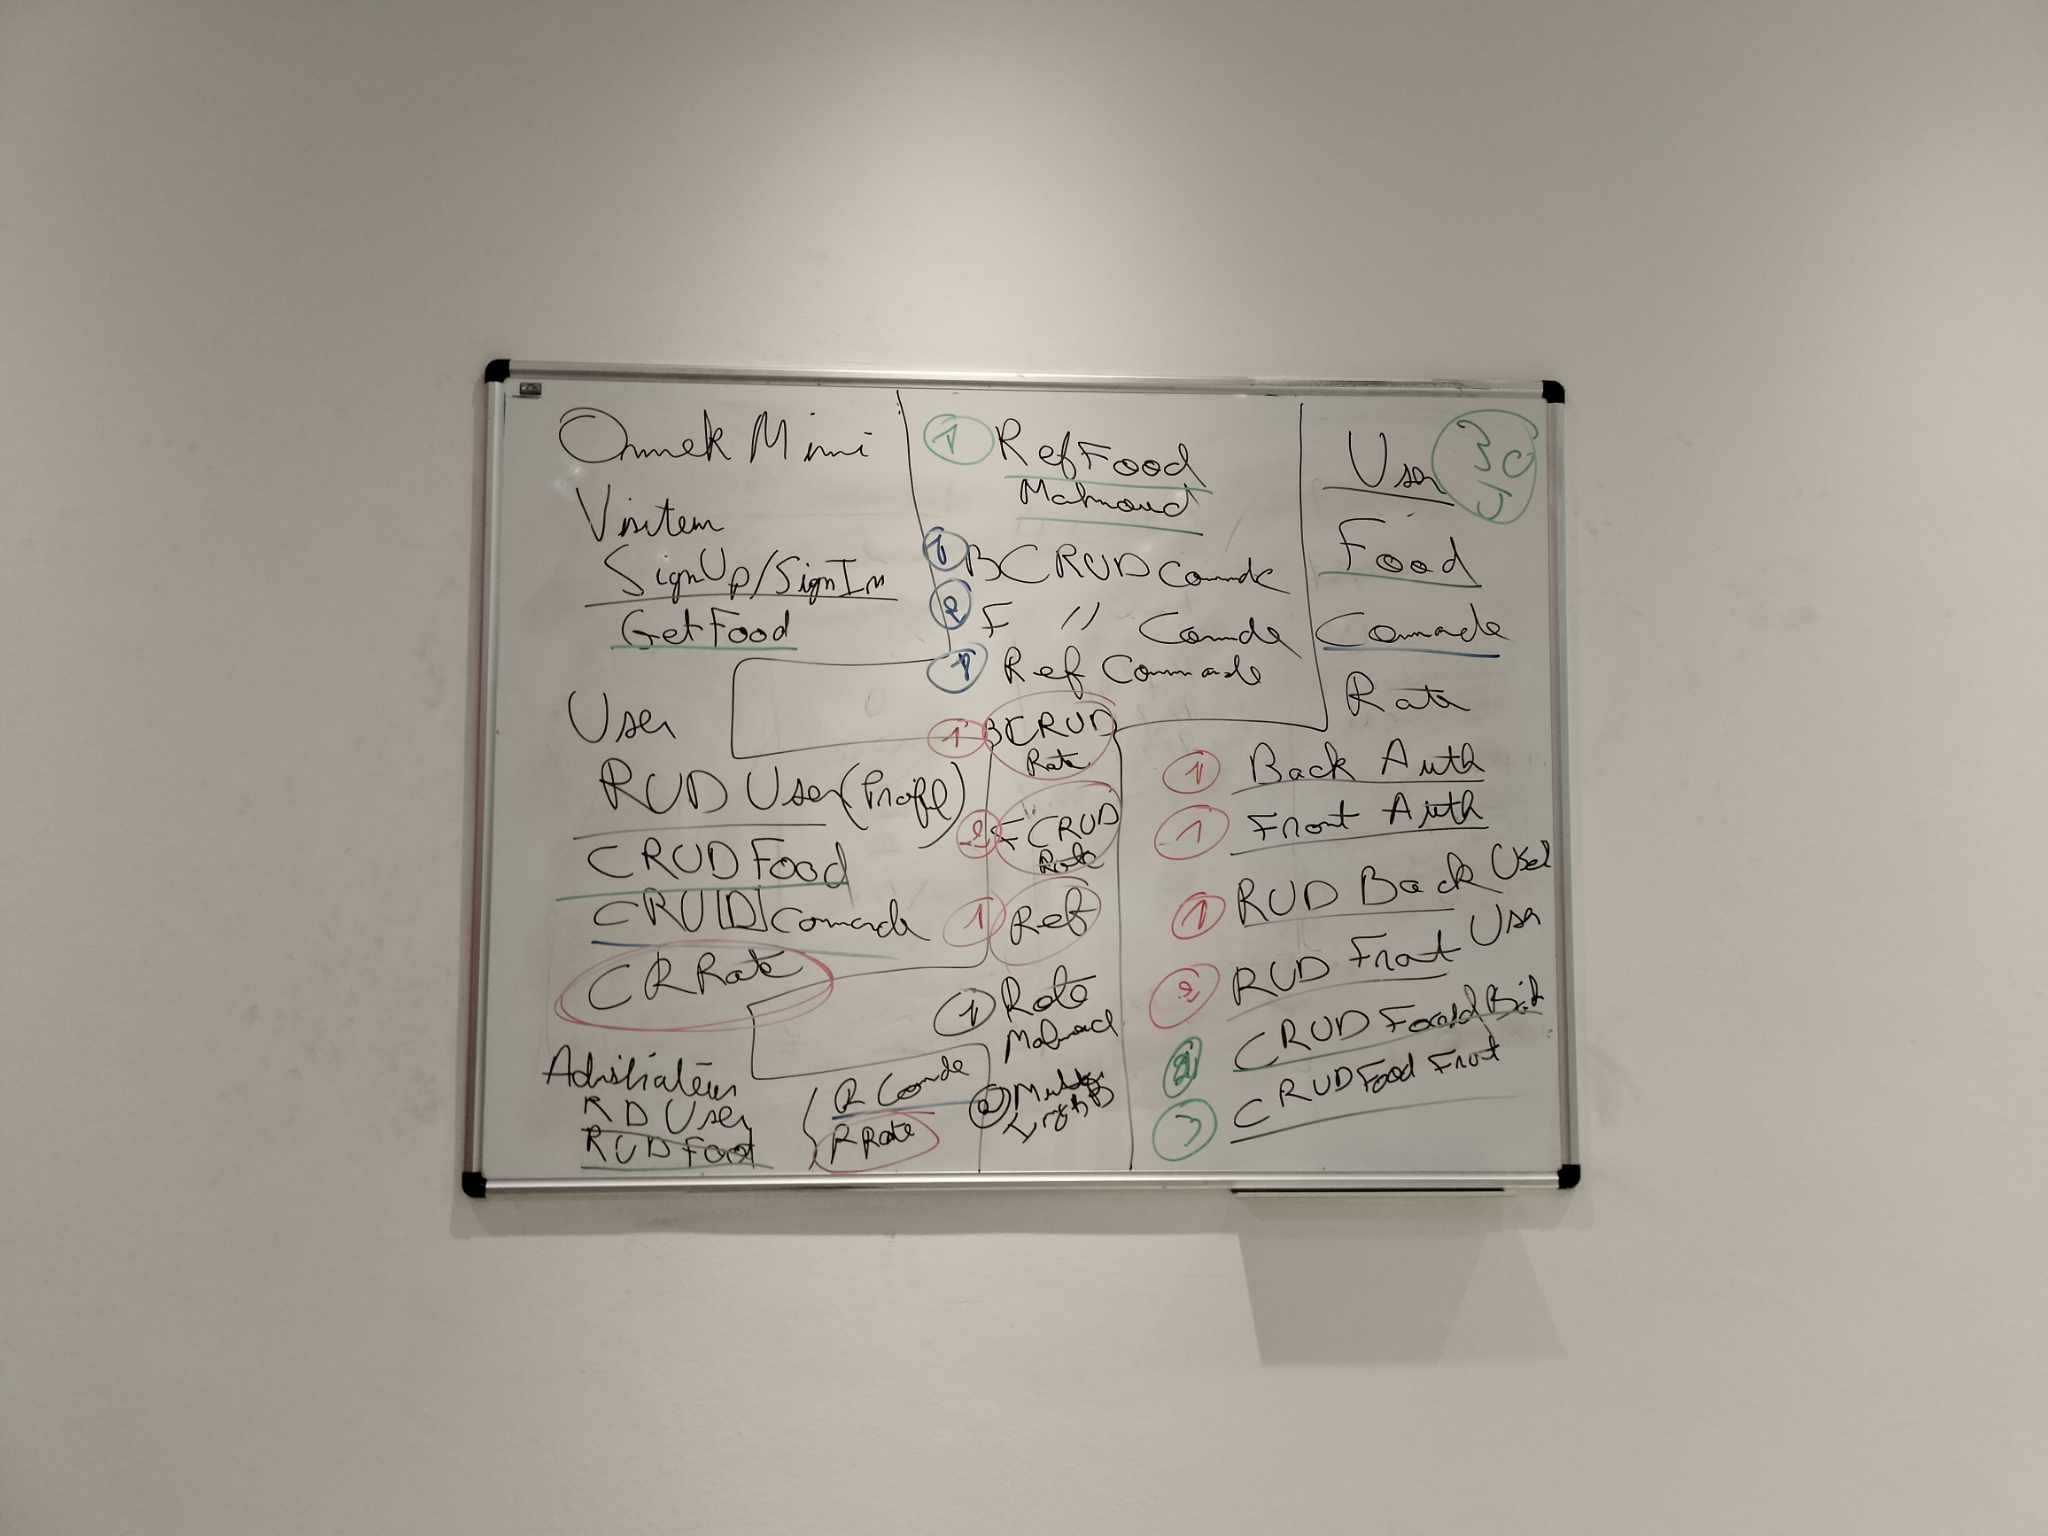 Omek Mimi
Visiteur
SignUp/SignIn
GetFood
User
RUD User (Profil)
CRUD Food
CRUD Comande
CR Rate
RD User
RUD Food
R Comde
R Rate
1 Ref Food
Mahmoud
1 B CRUD Comde
2 F " Comde
1 Ref Commande
1 B CRUD
Rate
2 F CRUD
Rate
1 Ref
1 Rate
Mahmoud
2
User 30
J
Food
Comade
Rate
1 Back Auth
1 Front Auth
1 RUD Back User
2 RUD Front User
2 CRUD Food Back
3 CRUD Food Front